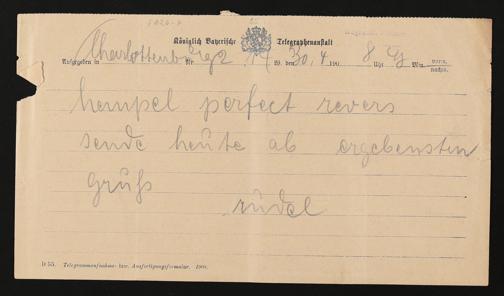 Königlich Bayerische Telegraphenanstalt
Aufgegeben in Charlottenburg 2 Nr. W. den 30. 4 190 8 Uhr Min. vorm. nachm.
hempel perfect revers
sende heute ab ergebensten
gruß
rüdel
D 55. Telegrammaufnahme- bzw. Ausfertigungsformular. 190